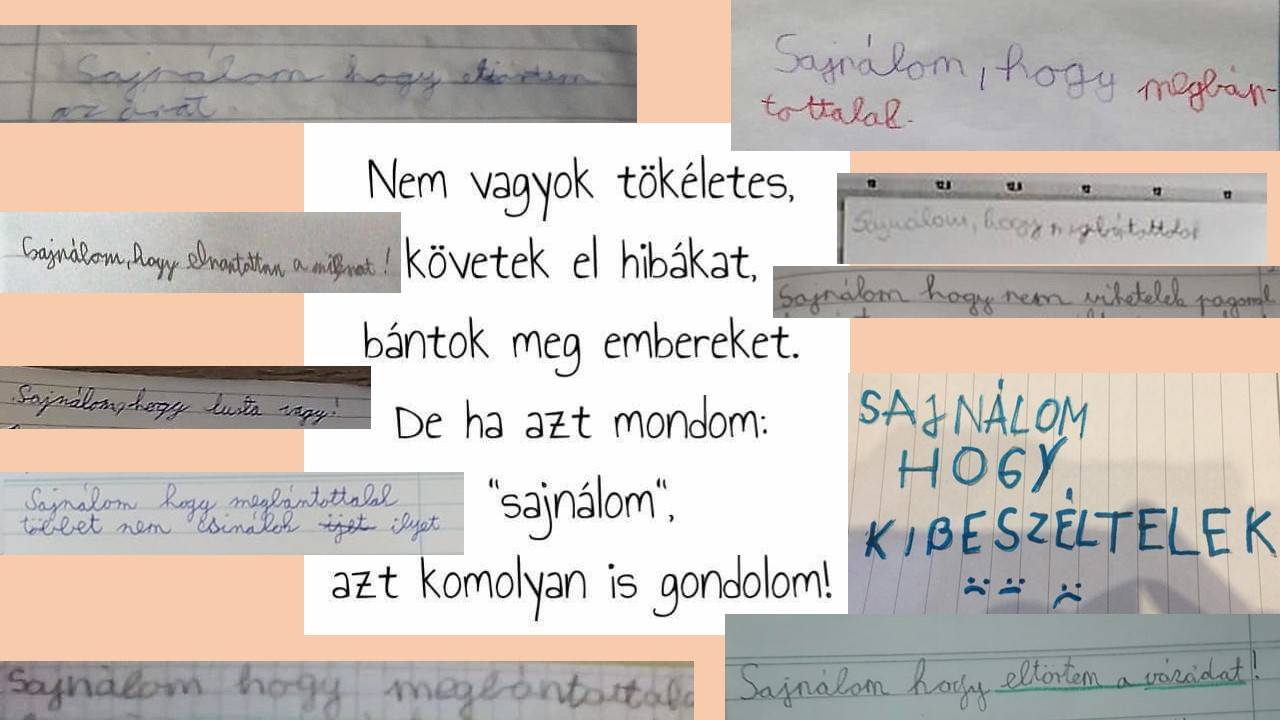 Sajnálom hogy eltörtem
az órát.
Sajnálom, hogy megbán-
tottalak.
Nem vagyok tökéletes,
követek el hibákat,
bántok meg embereket.
De ha azt mondom:
"sajnálom",
azt komolyan is gondolom!
Sajnálom, hogy
Sajnálom, hogy elrontottam a
Sajnálom hogy nem vihetelek
Sajnálom, hogy lusta vagy!
SAJNÁLOM
HOGY
KIBESZÉLTELEK
Sajnálom hogy megbántottalak
többet nem csinálok ilyet
Sajnálom hogy
Sajnálom hogy eltörtem a vázádat!